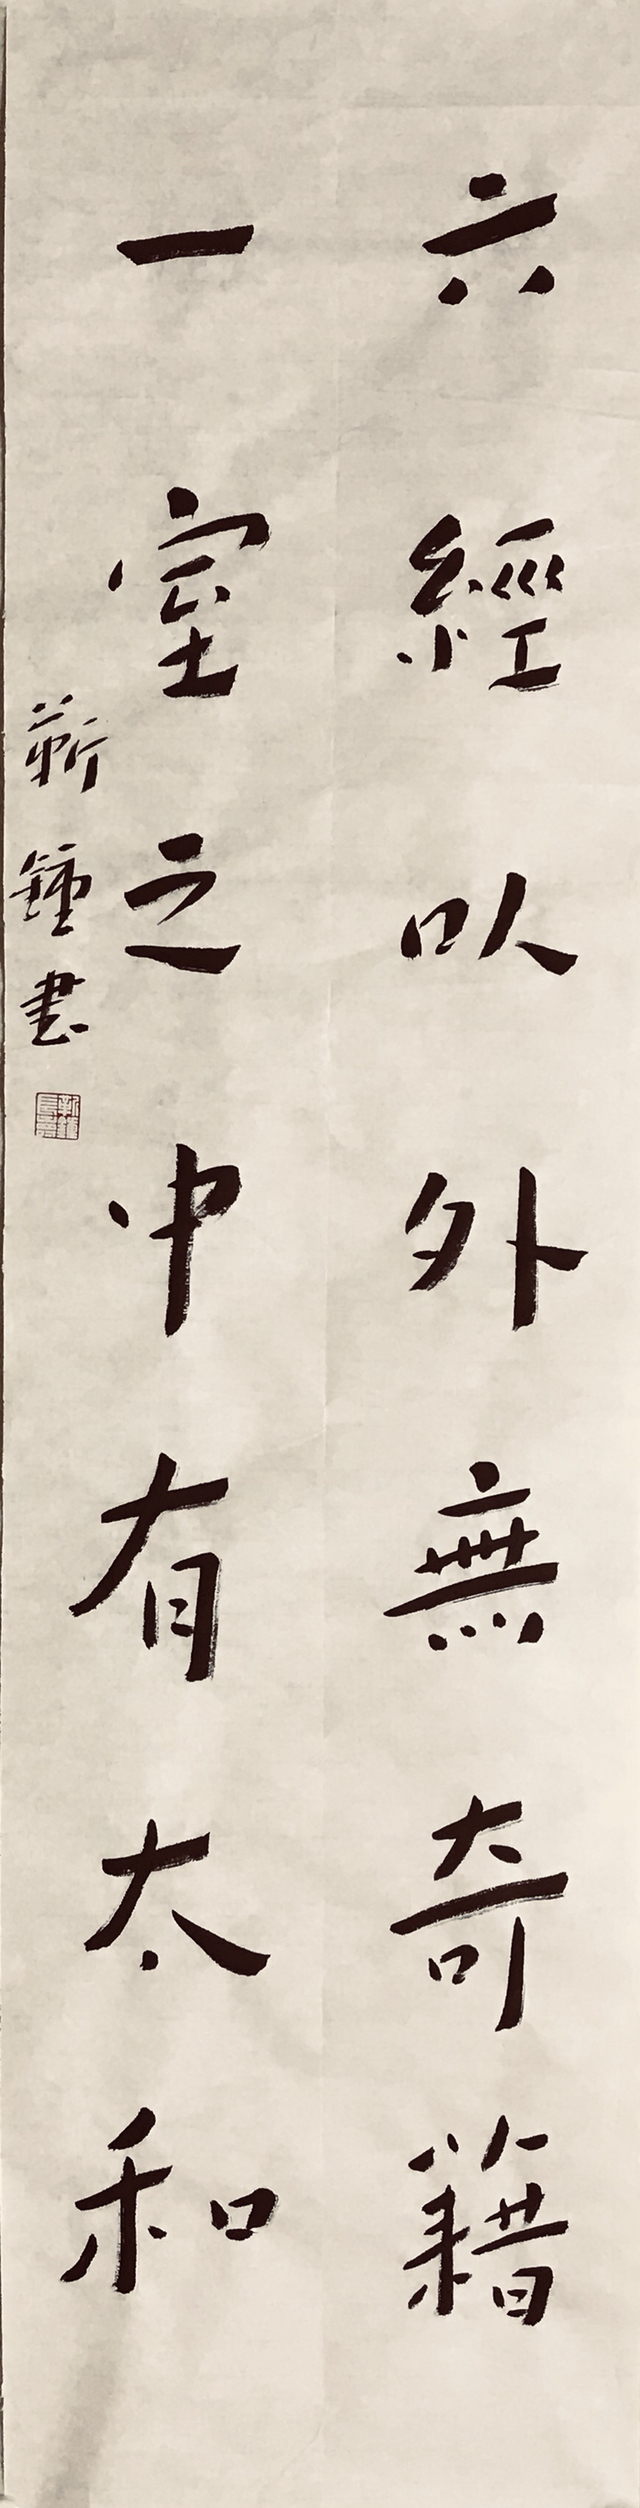 六經以外無奇籍
一室之中有太和
靳鐘書